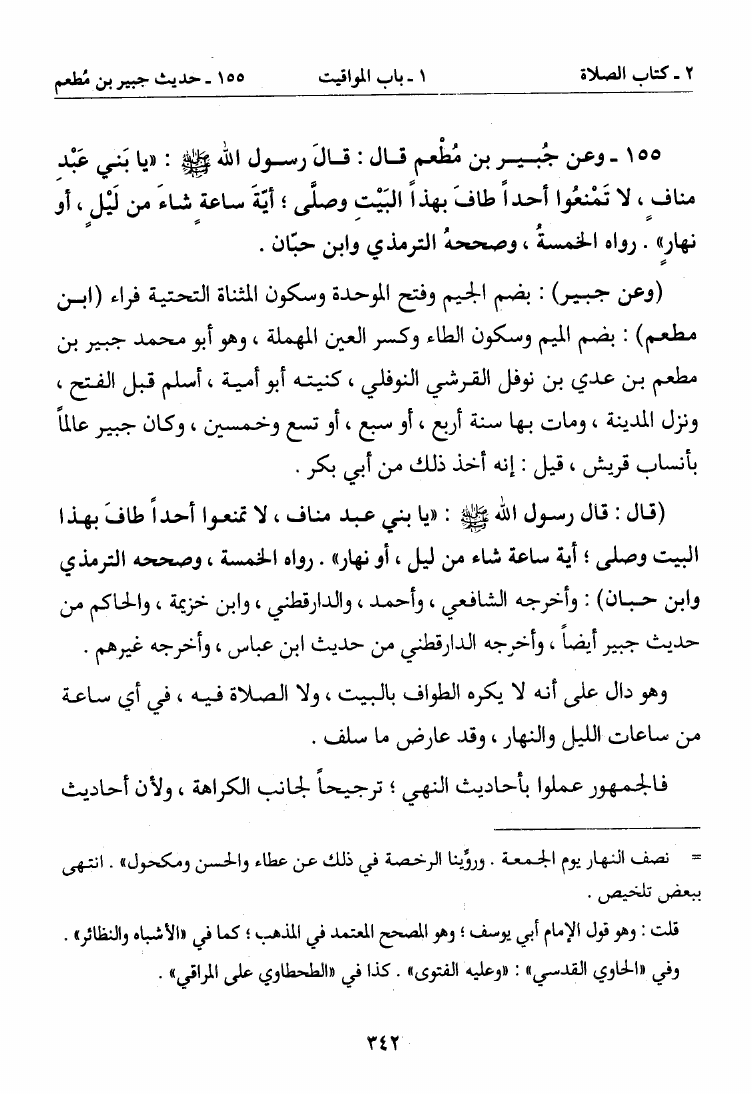 ٢ ـ كتاب الصلاة ١ ـ باب المواقيت ١٥٥ ـ حديث جبير بن مُطعم
١٥٥ ـ وعن جُبـيـر بن مُطْعم قـال : قـالَ رسـول الله ﷺ : «يا بَني عَبْدِ
منافٍ ، لا تَمْنَعُوا أحداً طافَ بهذا البَيْتِ وصلَّى ؛ أيّةَ ساعةٍ شاءَ من لَيْلٍ ، أو
نهارٍ» . رواه الخمسةُ ، وصححهُ الترمذي وابن حبّان .
(وعن جبـير) : بضم الجيم وفتح الموحدة وسكون المثناة التحتية فراء (ابـن
مطعـم) : بضم الميم وسكون الطاء وكسر العين المهملة ، وهو أبو محمد جبير بن
مطعم بن عدي بن نوفل القرشي النوفلي ، كنيته أبو أمية ، أسلم قبل الفتح ،
ونزل المدينة ، ومات بها سنة أربع ، أو سبع ، أو تسع وخمسين ، وكان جبير عالماً
بأنساب قريش ، قيل : إنه أخذ ذلك من أبي بكر .
(قـال : قال رسـول الله ﷺ : «يا بني عبـد منـاف ، لا تمنعـوا أحداً طافَ بهـذا
البيت وصلى ؛ أية ساعة شاء من ليل ، أو نهار» . رواه الخمسة ، وصححه الترمذي
وابن حبـان) : وأخرجه الشافعي ، وأحمد ، والدارقطني ، وابن خزيمة ، والحاكم من
حديث جبير أيضاً ، وأخرجه الدارقطني من حديث ابن عباس ، وأخرجه غيرهم .
وهو دال على أنه لا يكره الطواف بالبيت ، ولا الصلاة فيه ، في أي ساعة
من ساعات الليل والنهار ، وقد عارض ما سلف .
فالجمهور عملوا بأحاديث النهي ؛ ترجيحاً لجانب الكراهة ، ولأن أحاديث
= نصف النهار يوم الجمعة . وروِّينا الرخصة في ذلك عن عطاء والحسن ومكحول» . انتهى
ببعض تلخيص .
قلت : وهو قول الإمام أبي يوسف ؛ وهو المصحح المعتمد في المذهب ؛ كما في «الأشباه والنظائر» .
وفي «الحاوي القدسي» : «وعليه الفتوى» . كذا في «الطحطاوي على المراقي» .
٣٤٢